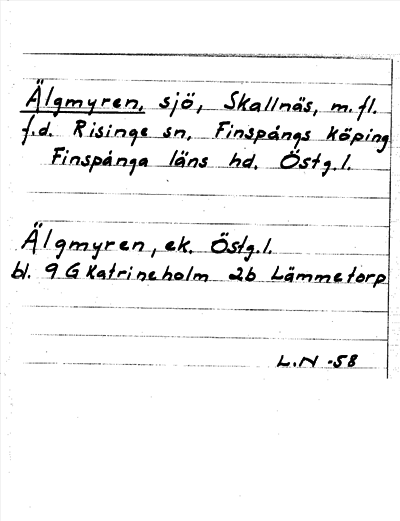 Älgmyren, sjö, Skallnäs, m.fl.
f.d. Risinge sn, Finspångs köping
Finspånga läns hd. Östg.l.
Älgmyren, ek. Östg.l.
bl. 9G Katrineholm 2b Lämmetorp
L.N -58